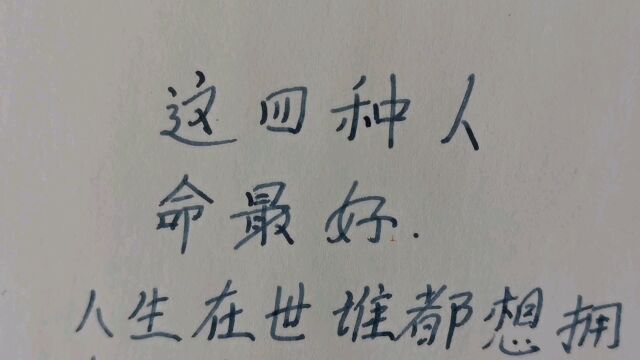 这四种人
命最好.
人生在世谁都想拥